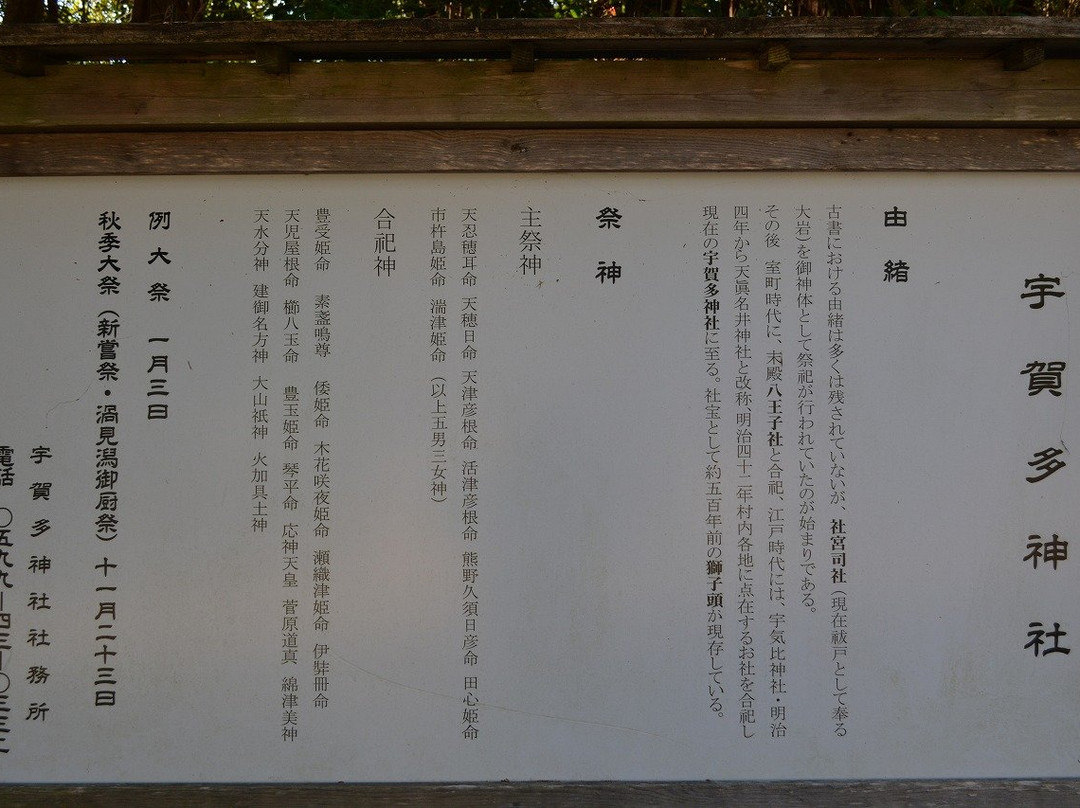 宇賀多神社
由緒
古書における由緒は多くは残されていないが、社宮司社（現在祓戸として奉る
大岩）を御神体として祭祀が行われていたのが始まりである。
その後 室町時代に、末殿八王子社と合祀、江戸時代には、宇気比神社・明治
四年から天眞名井神社と改称、明治四十二年村内各地に点在するお社を合祀し
現在の宇賀多神社に至る。社宝として約五百年前の獅子頭が現存している。
祭神
主祭神
天忍穂耳命 天穂日命 天津彦根命 活津彦根命 熊野久須日彦命 田心姫命
市杵島姫命 湍津姫命（以上五男三女神）
合祀神
豊受姫命 素盞鳴尊 倭姫命 木花咲夜姫命 瀬織津姫命 伊弉冊命
天児屋根命 櫛八玉命 豊玉姫命 琴平命 応神天皇 菅原道真 綿津美神
天水分神 建御名方神 大山祇神 火加具土神
例大祭 一月三日
秋季大祭（新嘗祭・渦見潟御厨祭）十一月二十三日
宇賀多神社社務所
電話 〇五九九－四三－〇三三二